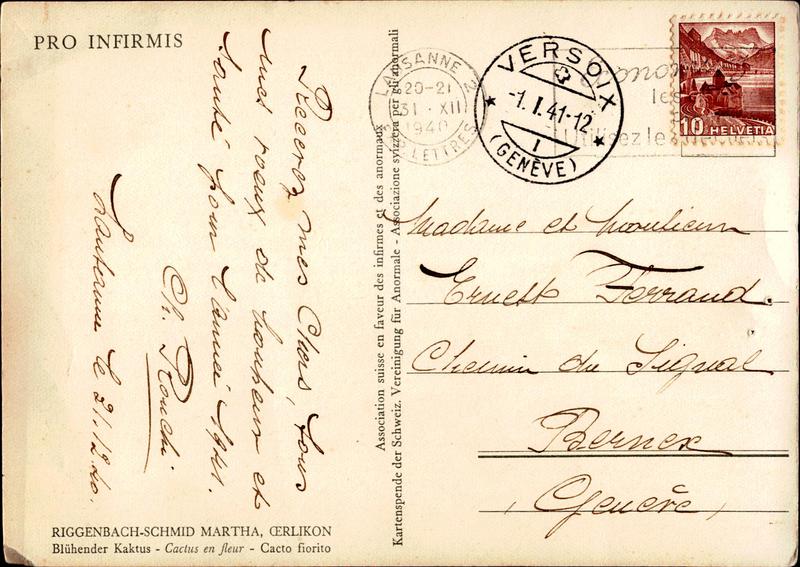 PRO INFIRMIS
Recevez mes Chers, tous
mes voeux de bonheur et
santé pour l'année 1941.
Ch. Rouchi
Lausanne le 31.12.40.
RIGGENBACH-SCHMID MARTHA, ŒRLIKON
Blühender Kaktus - Cactus en fleur - Cacto fiorito
Association suisse en faveur des infirmes et des anormaux
Kartenspende der Schweiz. Vereinigung für Anormale - Associazione svizzera per gli anormali
LAUSANNE 2
20-21
31 · XII
1940
LETTRES
VERSOIX
-1. I. 41-12
I
(GENÈVE)
les
Utilisez le
10 HELVETIA
Madame et Monsieur
Ernest Ferrand.
Chemin du Signal
Bernex
(Genève)